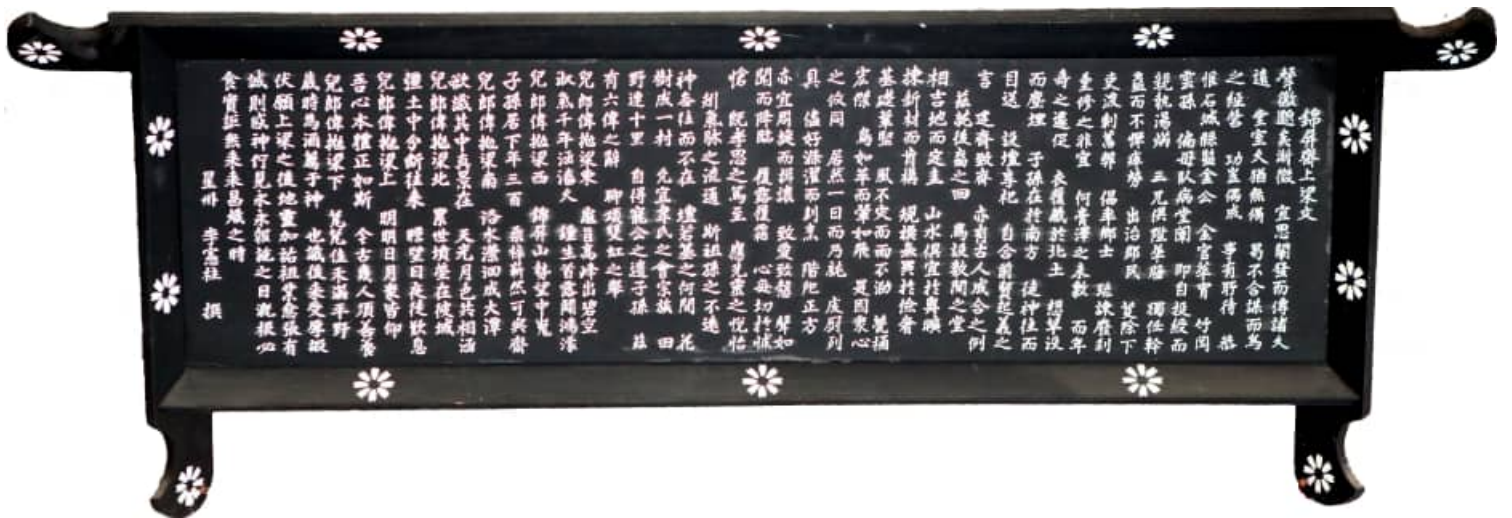 錦屏齋上梁文
聲徽邈矣漸微 宜思闡發而傳諸久
遠 堂室久猶無備 曷不合謀而爲
之經營 功豈偶成 事有所待 恭
惟石城縣監金公 金官華胄 竹岡
雲孫 偏母臥病堂闈 即自投綬而
親執湯 三兄俱陞華膴 獨任幹
蠱而不憚瘁勞 出治郡民 除下
吏浚剝蓋弊 倡率鄉士 誅廢刹
重修之非宜 何耆溥之未數 而年
壽之遽促 衣履藏於北土 想草沒
而塵埋 子孫在於南方 徒神往而
目送 設壇享祀 自合前賢起義之
言 建齋致齊 亦有古人成合之例
 茲花後裔之回 爲設數間之堂
相吉地而定圭 山水俱宜於輿曠
揀新材而肯構 規模無異於儉奢
基礎鞏堅 風不突而雨不泐 甍桷
宏傑 鳥如革而翬如飛 是因衆心
之攸同 居然一日而乃訖 庋廚列
具 儘好滌潔而割烹 階阤正方
亦宜周旋而揖讓 致愛致慤 髣如
聞而降臨 履露履霜 心每切於悽
愴 旣孝思之篤至 應先靈之悅怡
 刻氣脉之流通 斯祖孫之不遠
神各往而不在 壇若墓之何間 花
樹成一村 允宜韋氏之會宗族 田
野連十里 自得寵公之遺子孫 茲
有六偉之辭 聊頌雙虹之擧
兒郎偉抛梁東 處首高峰出碧空
淑氣千年涵滀久 鍾生首露闢鴻濛
兒郎偉抛梁西 錦屏山勢望中
子孫居下年三百 喬梓嶄然可與齊
兒郎偉抛梁南 洛水瀠洄成大潭
欲識其中眞景在 天光月色共相涵
兒郎偉抛梁北 累世墳塋在陵城
疆土中分斷往來 瞻望日夜徒歎息
兒郎偉抛梁上 明明日月衆皆仰
吾心本體正如斯 今古幾人須善養
兒郎偉抛梁下 佳禾滿平野
歲時爲酒薦于神 也識後來受厚嘏
伏願上梁之後地靈加祐祖業愈張有
誠則感神行見永永報祀之日親根必
食實玆無來未易熾之時
星州 李憲柱 撰